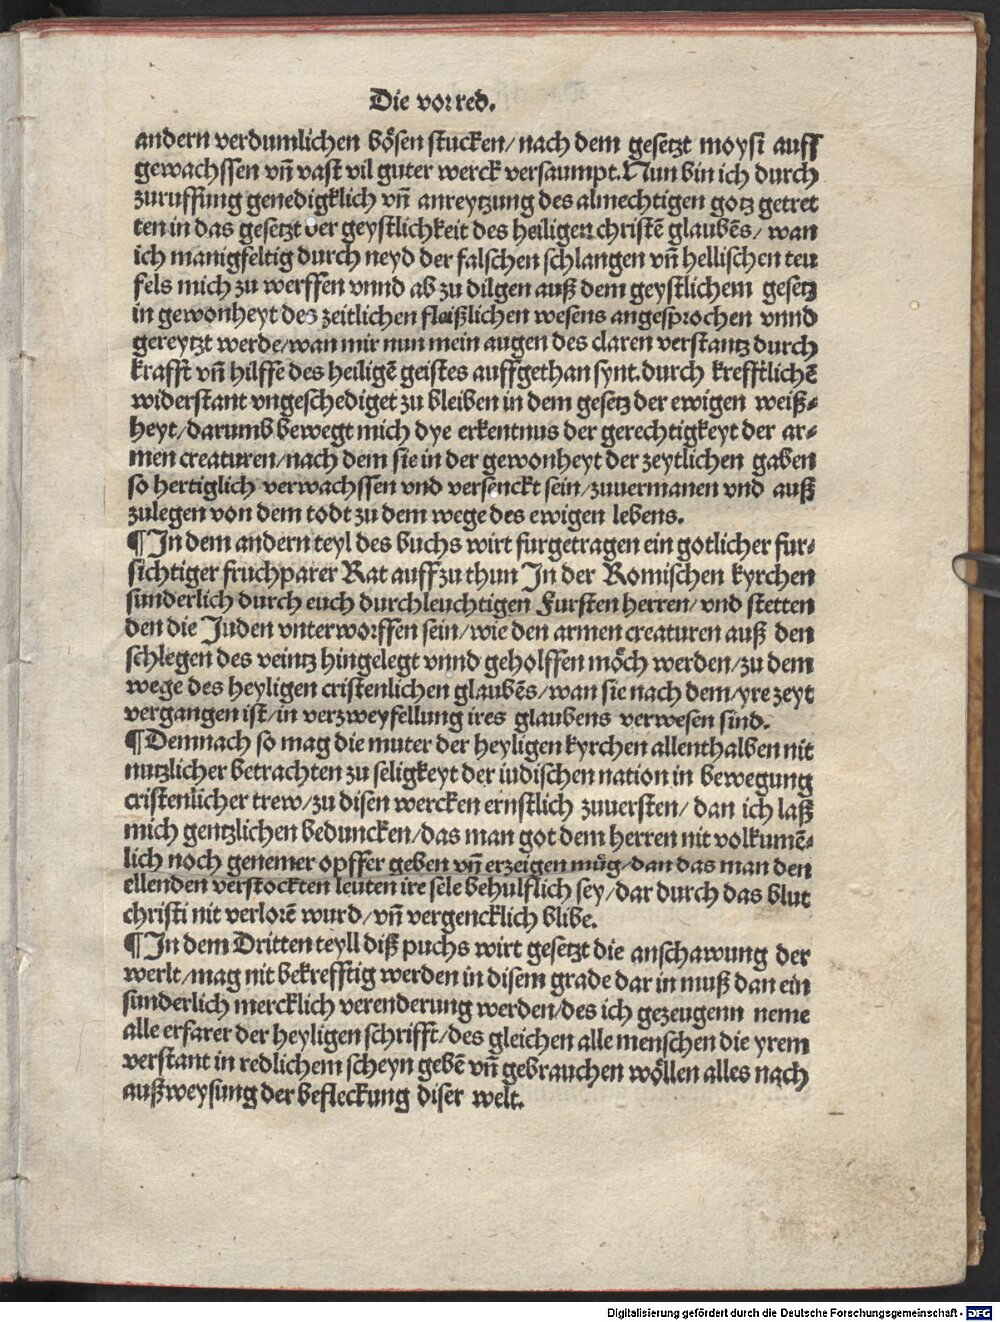 Die vorred.
andern verdumlichen bösen stucken/ nach dem gesetzt moysi auff
gewachssen vñ vast vil guter werck versaumpt. Nun bin ich durch
zuruffung genedigklich vñ anreytzung des almechtigen gotz getret
ten in das gesetzt der geystlichkeit des heiligen christē glaubēs/ wan
ich manigfeltig durch neyd der falschen schlangen vñ hellischen teu
fels mich zu werffen vnnd ab zu dilgen auß dem geystlichem gesetz
in gewonheyt des zeitlichen flaißlichen wesens angesprochen vnnd
gereytzt werde/ wan mir nun mein augen des claren verstantz durch
krafft vñ hilffe des heiligē geistes auffgethan synt. durch krefftlichē
widerstant vngeschediget zu bleiben in dem gesetz der ewigen weiß⸗
heyt/ darumb bewegt mich dye erkentnus der gerechtigkeyt der ar⸗
men creaturen/ nach dem sie in der gewonheyt der zeytlichen gaben
so hertiglich verwachssen vnd versenckt sein/ zuuermanen vnd auß
zulegen von dem todt zu dem wege des ewigen lebens.
¶ In dem andern teyl des buchs wirt furgetragen ein gotlicher fur⸗
sichtiger fruchparer Rat auff zu thun In der Romischen kyrchen
sunderlich durch euch durchleuchtigen Fursten herren/ vnd stetten
den die Juden vnterworffen sein/ wie den armen creaturen auß den
schlegen des veintz hingelegt vnnd geholffen möch werden/ zu dem
wege des heyligen cristenlichen glaubēs/ wan sie nach dem/ yre zeyt
vergangen ist/ in verzweyfellung ires glaubens verwesen sind.
¶ Demnach so mag die muter der heyligen kyrchen allenthalben nit
nutzlicher betrachten zu seligkeyt der iudischen nation in bewegung
cristenlicher trew/ zu disen wercken ernstlich zuuersten/ dan ich laß
mich gentzlichen beduncken/ das man got dem herren nit volkumē⸗
lich noch genemer opffer geben vñ erzeigen müg/ dan das man den
ellenden verstockten leuten ire sele behulflich sey/ dar durch das blut
christi nit verlorē wurd/ vñ vergencklich blibe.
¶ In dem Dritten teyll diß puchs wirt gesetzt die anschawung der
werlt/ mag nit bekrefftig werden in disem grade dar in muß dan ein
sunderlich mercklich verenderung werden/ des ich gezeugenn neme
alle erfarer der heyligen schrifft/ des gleichen alle menschen die yrem
verstant in redlichem scheyn gebē vñ gebrauchen wöllen alles nach
außweysung der befleckung diser welt.
Digitalisierung gefördert durch die Deutsche Forschungsgemeinschaft - DFG